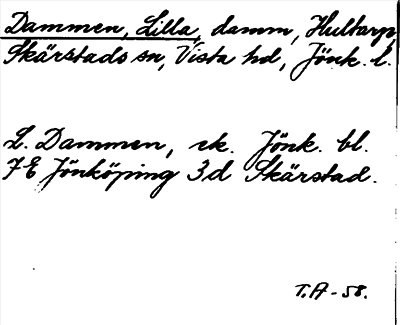 Dammen, Lilla, damm, Hultarp,
Skärstads sn, Vista hd, Jönk. l.
L. Dammen, ek. Jönk. bl.
7E Jönköping 3d Skärstad.
T.A-58.